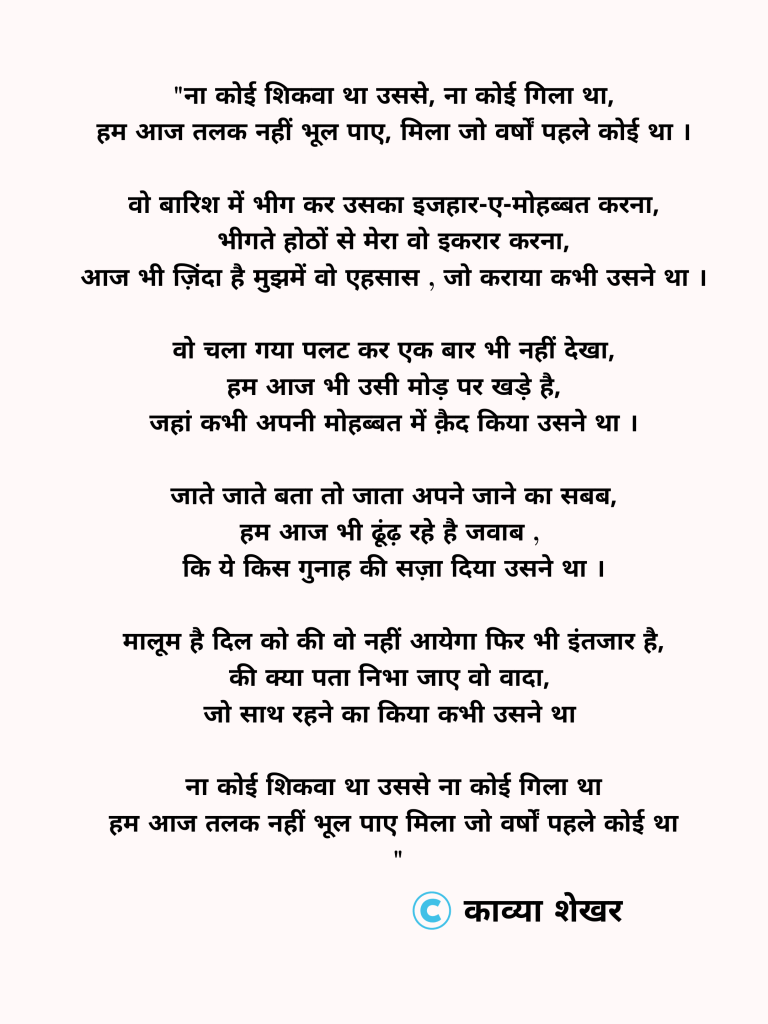 "ना कोई शिकवा था उससे, ना कोई गिला था,
हम आज तलक नहीं भूल पाए, मिला जो वर्षों पहले कोई था ।
वो बारिश में भीग कर उसका इजहार-ए-मोहब्बत करना,
भीगते होठों से मेरा वो इकरार करना,
आज भी ज़िंदा है मुझमें वो एहसास , जो कराया कभी उसने था ।
वो चला गया पलट कर एक बार भी नहीं देखा,
हम आज भी उसी मोड़ पर खड़े है,
जहां कभी अपनी मोहब्बत में क़ैद किया उसने था ।
जाते जाते बता तो जाता अपने जाने का सबब,
हम आज भी ढूंढ़ रहे है जवाब ,
कि ये किस गुनाह की सज़ा दिया उसने था ।
मालूम है दिल को की वो नहीं आयेगा फिर भी इंतजार है,
की क्या पता निभा जाए वो वादा,
जो साथ रहने का किया कभी उसने था
ना कोई शिकवा था उससे ना कोई गिला था
हम आज तलक नहीं भूल पाए मिला जो वर्षों पहले कोई था
"
© काव्या शेखर